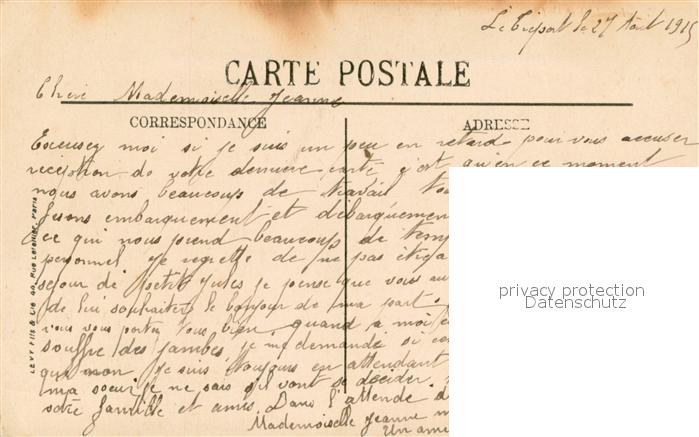 Le Tréport le 27 Août 1915
CARTE POSTALE
Chère Mademoiselle Jeanne
CORRESPONDANCE
ADRESSE
Excusez moi si je suis un peu en retard pour vous accuser
réception de votre dernière carte c'est qu'en ce moment
nous avons beaucoup de travail
embarquement et débarquement
ce qui nous prend beaucoup de temp
personnel je regrette de ne pas
séjour de petit Jules je pense que vous au
de lui souhaiter le bonjour de ma part.
vous vous portez tous bien. quand a moi
souffre des jambes, je me demande si
que non je suis toujours en attendant
ma soeur je ne sais s'il vont se décider.
votre famille et amis. Dans l'attende d
Mademoiselle Jeanne m
Un ami
LEVY FILS & Cie 44, Rue Letellier, Paris
privacy protection
Datenschutz